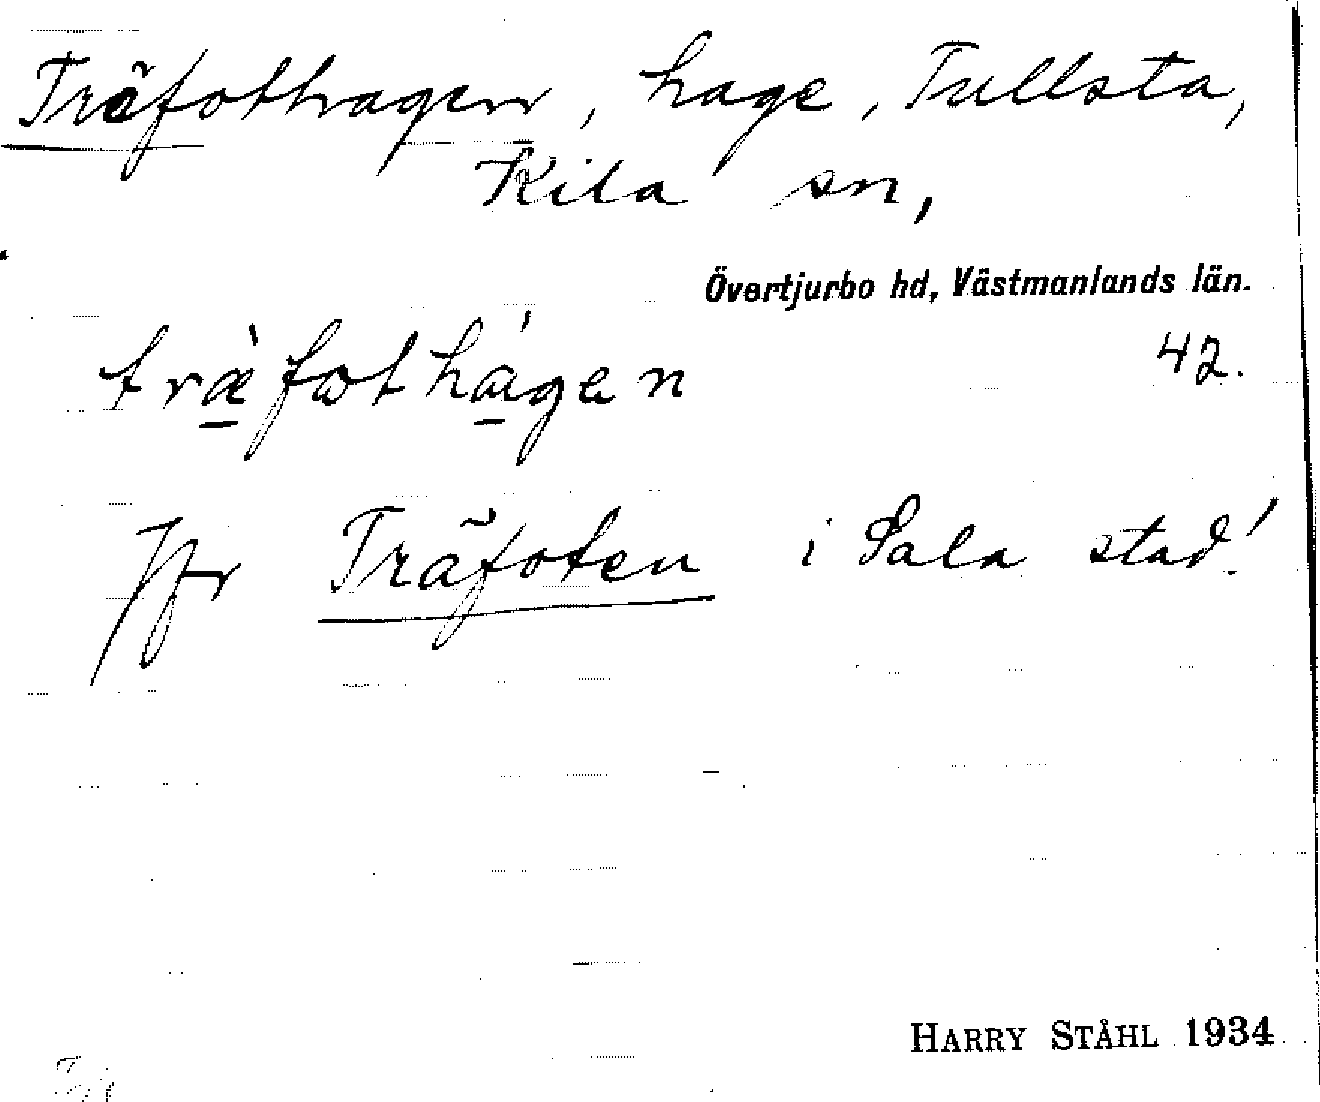 Träfothagen, hage, Tullsta,
Kila sn,
Övertjurbo hd, Västmanlands län.
træ̀fωthágen 42.
Jfr Träfoten i Sala stad!
HARRY STÅHL 1934